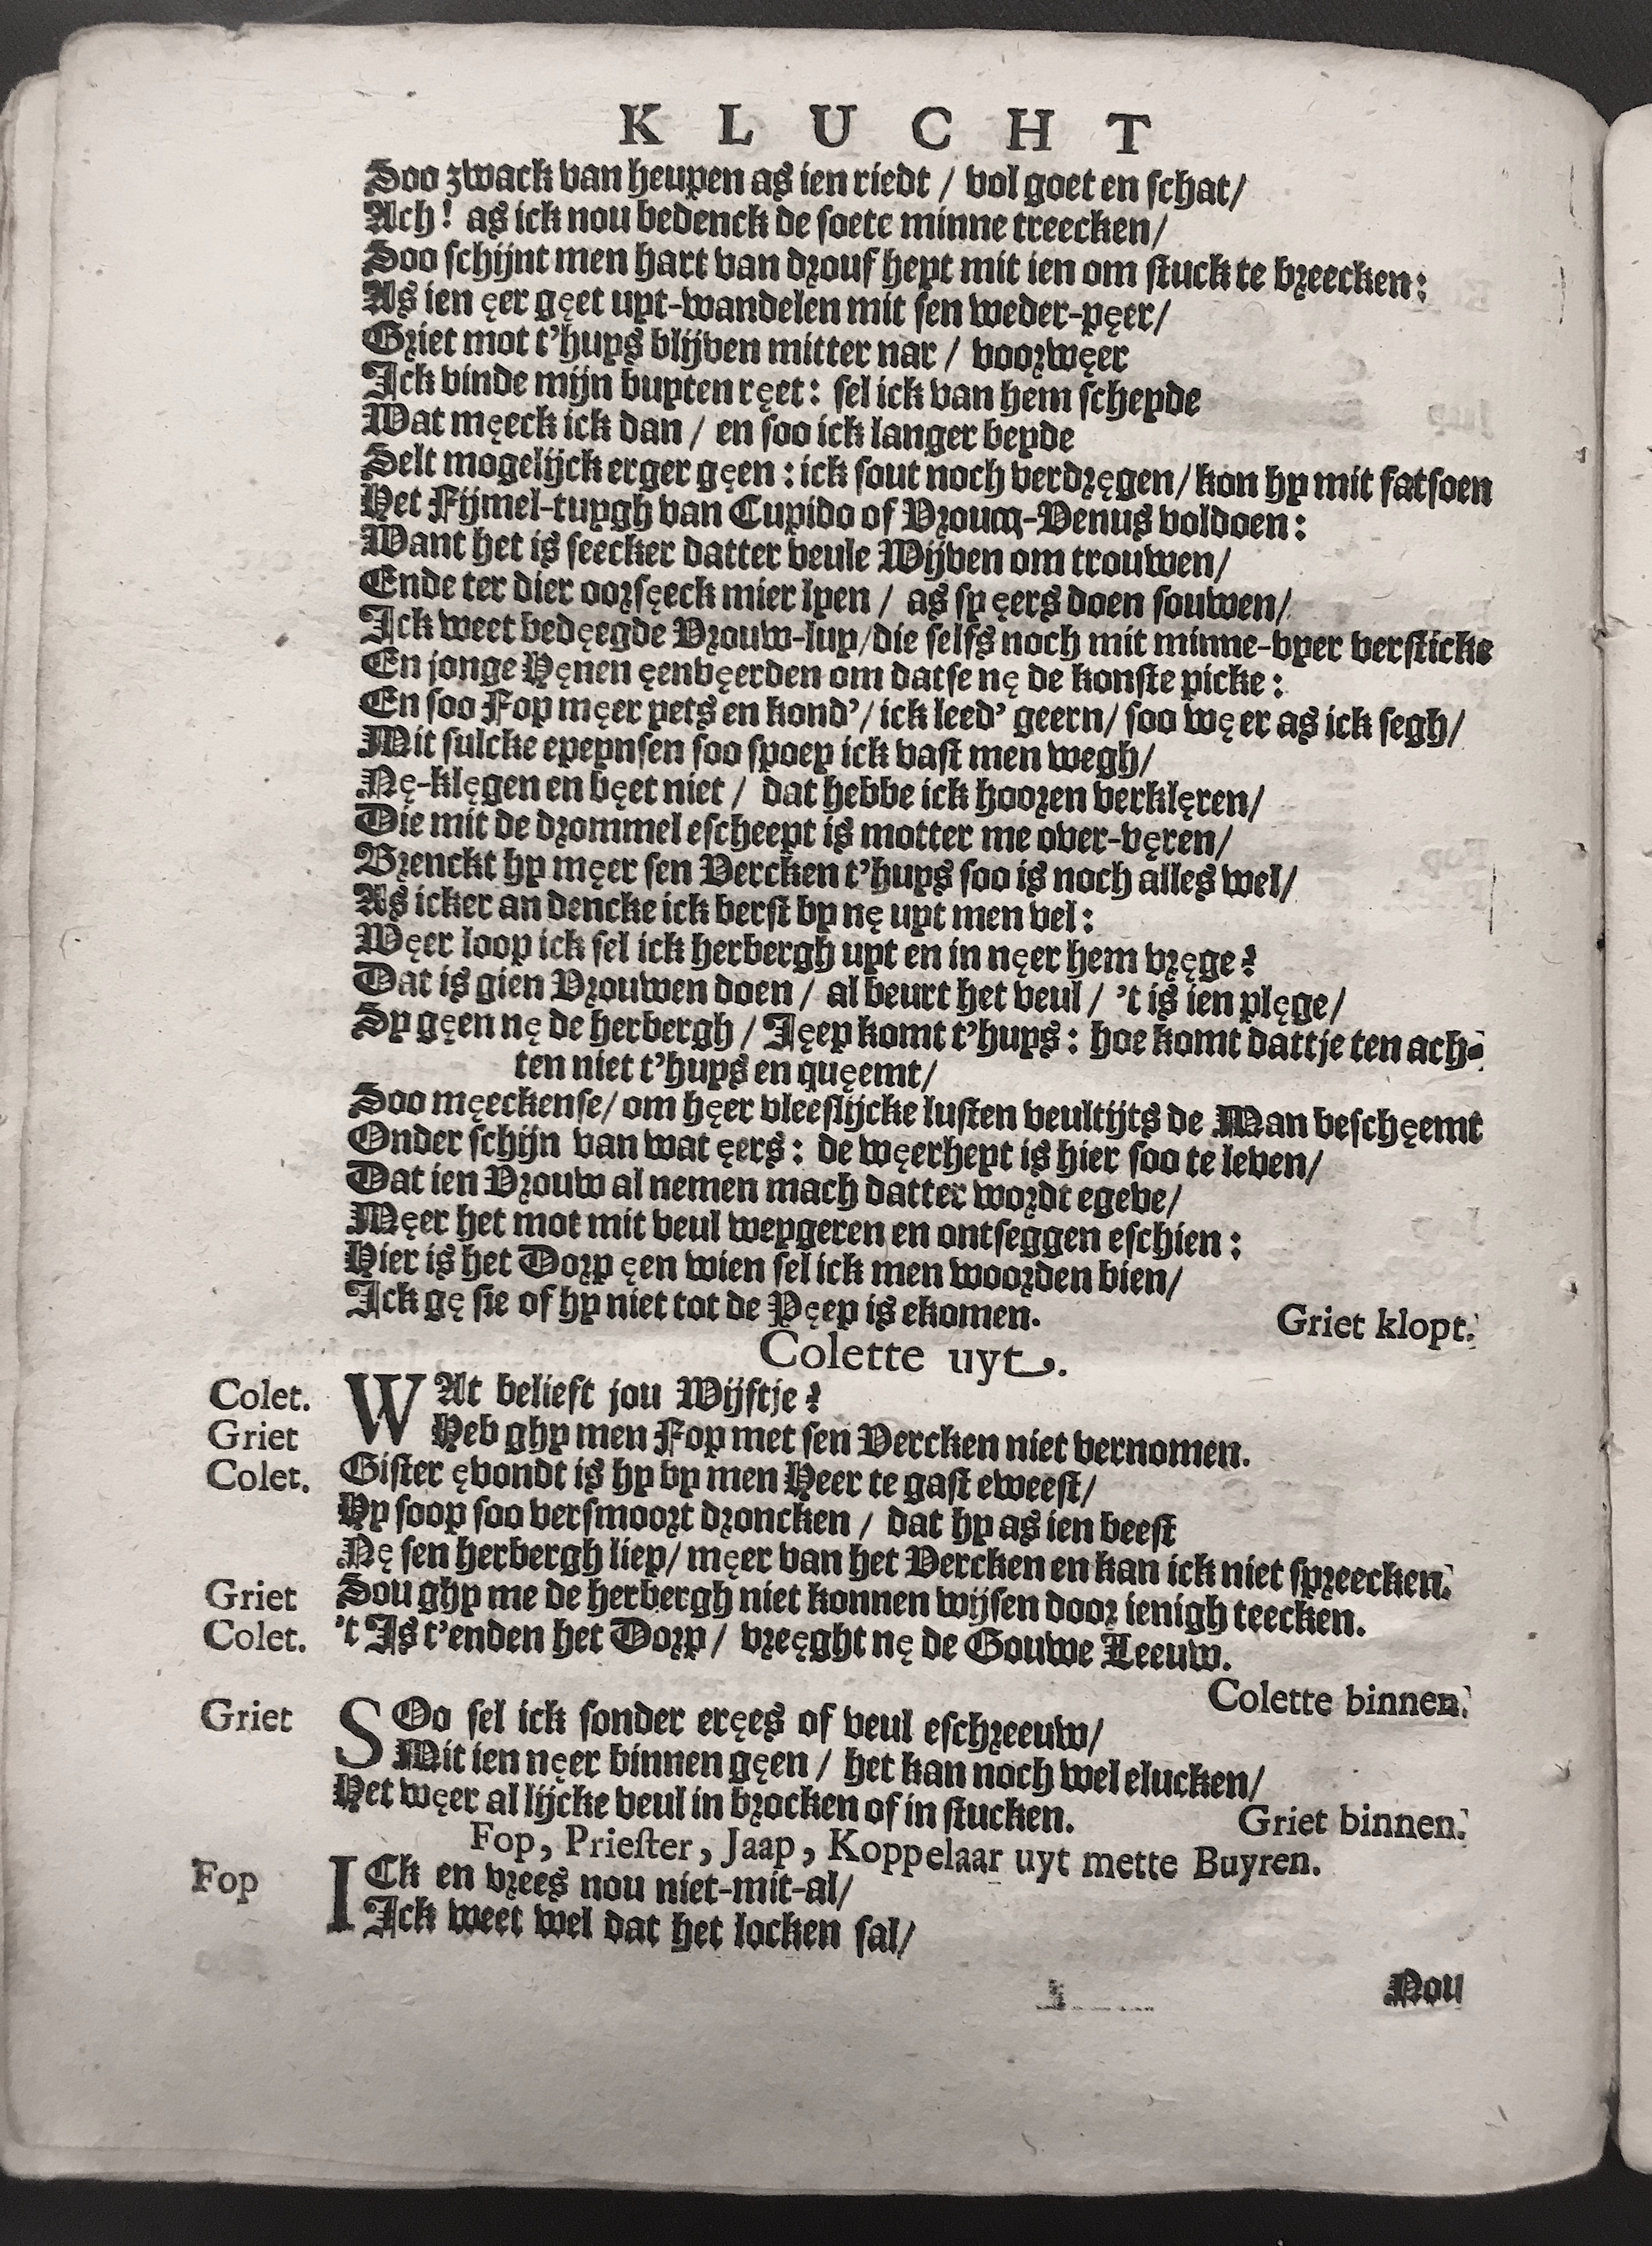 KLUCHT
Soo zwack van heupen as ien riedt / vol goet en schat/
Ach! as ick nou bedenck de soete minne treecken/
Soo schijnt men hart van drouf heyt mit ien om stuck te breecken:
As ien ęer gęet uyt-wandelen mit sen weder-pęer/
Griet mot t'huys blijven mitter nar / voorwęer
Ick vinde mijn buyten ręet: sel ick van hem scheyde
Wat męeck ick dan / en soo ick langer beyde
Selt mogelijck erger gęen: ick sout noch verdręgen/ kon hy mit fatsoen
Het Fijmel-tuygh van Cupido of Vrouw-Venus voldoen:
Want het is seecker datter veule Wijven om trouwen/
Ende ter dier oorsęeck mier lyen / as sy ęers doen souwen/
Ick weet bedęegde Vrouw-luy/die selfs noch mit minne-vyer versticke
En jonge Hęnen ęenvęerden om datse nę de konste picke:
En soo Fop męer yets en kond'/ ick leed' geern/ soo węer as ick segh/
Mit sulcke epeynsen soo spoey ick vast men wegh/
Nę-klęgen en bęet niet / dat hebbe ick hooren verklęren/
Die mit de drommel escheept is motter me over-vęren/
Brenckt hy męer sen Vercken t'huys soo is noch alles wel/
As icker an dencke ick berst by nę uyt men vel:
Węer loop ick sel ick herbergh uyt en in nęer hem vręge?
Dat is gien Vrouwen doen / al beurt het veul / 't is ien plęge/
Sy gęen nę de herbergh / Jęep komt t'huys: hoe komt dattje ten ach-
ten niet t'huys en quęemt/
Soo męeckense/ om hęer vleeslijcke lusten veultijts de Man beschęemt
Onder schijn van wat ęers: de węerheyt is hier soo te leven/
Dat ien Vrouw al nemen mach datter wordt egeve/
Męer het mot mit veul weygeren en ontseggen eschien:
Hier is het Dorp ęen wien sel ick men woorden bien/
Ick gę sie of hy niet tot de Pęep is ekomen.
Griet klopt.
Colette uyt.
Colet. WAt belieft jou Wijftje?
Griet Heb ghy men Fop met sen Vercken niet vernomen.
Colet. Gister ęvondt is hy by men Heer te gast eweest/
Hy soop soo versmoort droncken / dat hy as ien beest
Nę sen herbergh liep/ męer van het Vercken en kan ick niet spreecken.
Griet Sou ghy me de herbergh niet konnen wijsen door ienigh teecken.
Colet. 't Is t'enden het Dorp / vreęght nę de Gouwe Leeuw.
Colette binnen.
Griet SOo sel ick sonder eręes of veul eschreeuw/
Mit ien nęer binnen gęen / het kan noch wel elucken/
Het węer al lijcke veul in brocken of in stucken.
Griet binnen.
Fop, Priester, Jaap, Koppelaar uyt mette Buyren.
Fop ICk en vrees nou niet-mit-al/
Ick weet wel dat het locken sal/
Nou